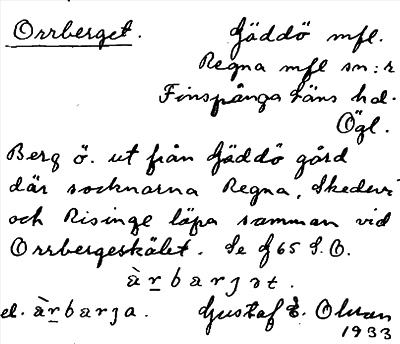 Orrberget. Gäddö mfl.
Regna mfl sn:r
Finspånga läns hd.
Ögl.
Berg ö. ut från Gäddö gård
där socknarna Regna, Skedevi
och Risinge löpa samman vid
Orrbergeskälet. Se G65 S.O.
el. Gustaf E. Olson
1933